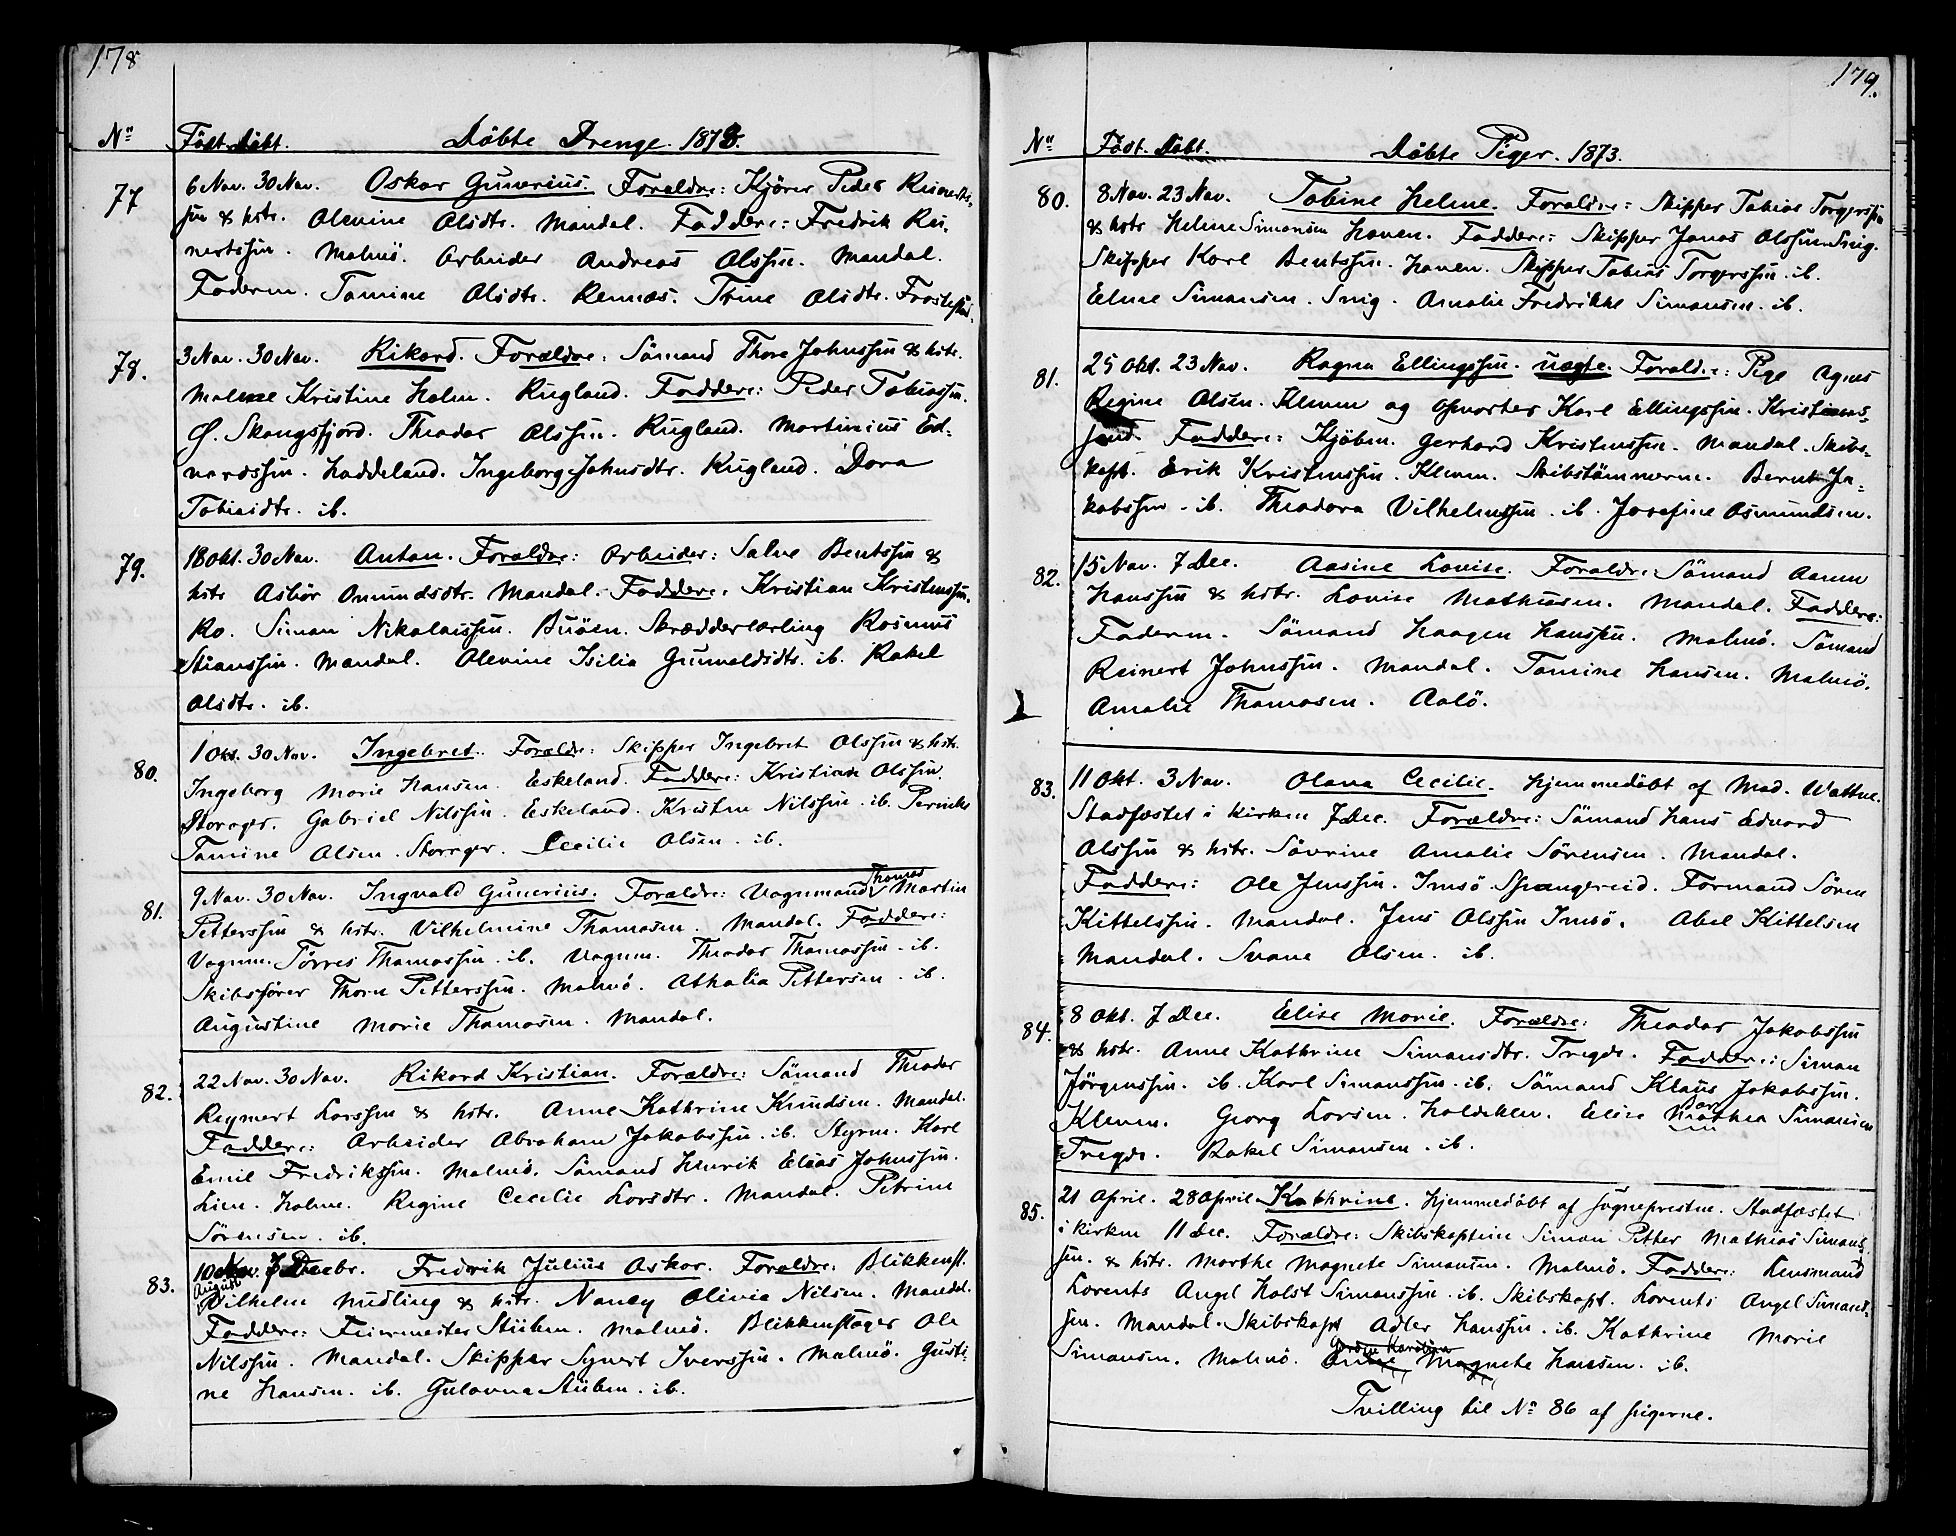 178
Nº Födt. Döbt. Döbte Drenge. 1873.
77 6 Nov. 30 Nov. Oskar Gunerius. Foraldre: Kjörer Peder Reinerts-
sen & hstr. Olevine Olsdtr. Mandal. Faddere: Fredrik Rei-
nertssen. Malmö. Arbeider Andreas Olssen. Mandal.
Faderen. Tomine Olsdtr. Rennes. Trine Olsdtr.
78. 3 Nov. 30 Nov. Rikard. Forældre: Sömand Thore Johnssen & hstr.
Malene Kristine Holm. Rugland. Faddere: Peder Tobiassen.
Ö. Skougsfjord. Theodor Olssen. Rugland. Martinius Ed-
vardssen. Haddeland. Ingeborg Johnsdtr. Rugland. Dora
Tobiasdtr. ib.
79. 18 Okt. 30 Nov. Anton. Foraldre: Arbeider: Salve Bentssen &
hstr Asbör Omundsdtr. Mandal. Faddere: Kristian Kristenssen.
Ro. Simon Nikolaissen. Buöen. Skrædderlærling Rasmus
Stianssen. Mandal. Olevine Isilia Gunvaldsdtr. ib. Rakel
Olsdtr. ib.
80. 1 Okt. 30 Nov. Ingebret. Forældre: Skipper Ingebret Olssen & hstr.
Ingeborg Marie Hansen. Eskeland. Faddere: Kristian Olssen.
Storoger. Gabriel Nilssen. Eskeland. Kristen Nilssen. ib. Pernille
Tomine Olsen. Storoger. Cecilie Olsen. ib.
81. 9 Nov. 30 Nov. Ingvald Gunerius. Foraldre: Vognmand Thomas Martin
Petterssen & hstr. Vilhelmine Thomasen. Mandal. Faddere:
Vognm. Törres Thomassen. ib. Vognm. Theodor Thomassen. ib.
Skibsförer Thorn Petterssen. Malmö. Athalia Pettersen. ib.
Augustine Marie Thomasen. Mandal.
82. 22 Nov. 30 Nov. Rikard Kristian. Forældre: Sömand Theodor
Reynert Larssen & hstr. Anne Kathrine Knudsen. Mandal.
Faddere: Arbeider Abraham Jakobssen. ib. Styrm. Karl
Emil Fredrikssen. Malmö. Sömand Henrik Elias Johnssen.
Lien. Holme. Regine Cecilie Larsdtr. Mandal. Petrine
Sörensen. ib.
83. 10 August 7 Decbr. Fredrik Julius Oskar. Foraldre: Blikkensl.
Vilhelm Nudling & hstr. Nancy Olivia Nilsen. Mandal.
Faddere: Feiermester Stüben. Malmö. Blikkenslager Ole
Nilssen. Mandal. Skipper Synert Iverssen. Malmö. Gusti-
ne Hansen. ib. Gulovna Stüben. ib.
179.
Nº Födt. Döbt. Döbte Piger. 1873.
80. 8 Nov. 23 Nov. Tobine Helene. Foraldre: Skipper Tobias Torgerssen
& hstr Helene Simonsen Haven. Faddere: Skipper Jonas Olssen Snig.
Skipper Karl Bentssen. Haven. Skipper Tobias Torgerssen. ib.
Elene Simonsen. Snig. Amalie Fredrikke Simonsen. ib.
81. 25 Okt. 23 Nov. Ragna Ellingssen. uægte. Forald.: Pige Agnes
Regine Olsen. Kleven og Opvarter Karl Ellingssen. Kristians-
sand. Faddere: Kjöbm. Gerhard Kristenssen. Mandal. Skibs-
kapt. Erik Kristenssen. Kleven. Skibstömmerm. Bernt Ja-
kobssen. ib. Theodora Vilhelmssen. ib. Josefine Osmundsen.
82. 15 Nov. 7 Dec. Aasine Lovise. Foraldre: Sömand Aanen
Hanssen & hstr. Lovise Mathiasen. Mandal. Faddere:
Faderen. Sömand Haagen Hanssen. Malmö. Sömand
Reinert Johnssen. Mandal. Tomine Hansen. Malmö.
Amalie Thomasen. Aalö.
83. 11 Okt. 3 Nov. Olava Cecilie. Hjemmedöbt af Mad. Wattne.
Stadfæstet i Kirken 7 Dec. Forældre: Sömand Hans Edvard
Olssen & hstr. Sövrine Amalie Sörensen. Mandal.
Faddere: Ole Jenssen. Imsö Spangereid. Formand Sören
Kittelssen. Mandal. Jens Olssen Imsö. Abel Kittelsen
Mandal. Svane Olsen. ib.
84. 8 Okt. 7 Dec. Elise Marie. Forældre: Theodor Jakobssen
& hstr. Anne Kathrine Simonsdtr. Tregde. Faddere: Simon
Jörgenssen. ib. Karl Simonssen. ib. Sömand Klaus Jakobssen.
Kleven. Georg Larsen. Elise Mathea Simonsen
Tregde. Rakel Simonsen. ib.
85. 21 April. 28 April Kathrine. Hjemmedöbt af Sogneprestne. Stadfæstet
i Kirken 11 Dec. Forældre: Skibskaptein Simon Petter Mathias Simons-
sen. & hstr. Marthe Magnete Simonsen. Malmö. Faddere: Lensmand
Lorents Angel Holst Simonssen. ib. Skibskapt. Lorents Angel Simons-
sen. Mandal. Skibskapt Adler Hanssen. ib. Kathrine Marie
Simonsen. Malmö. Anne Magnete Hansen. ib.
Tvilling til Nº 86 af pigerne.